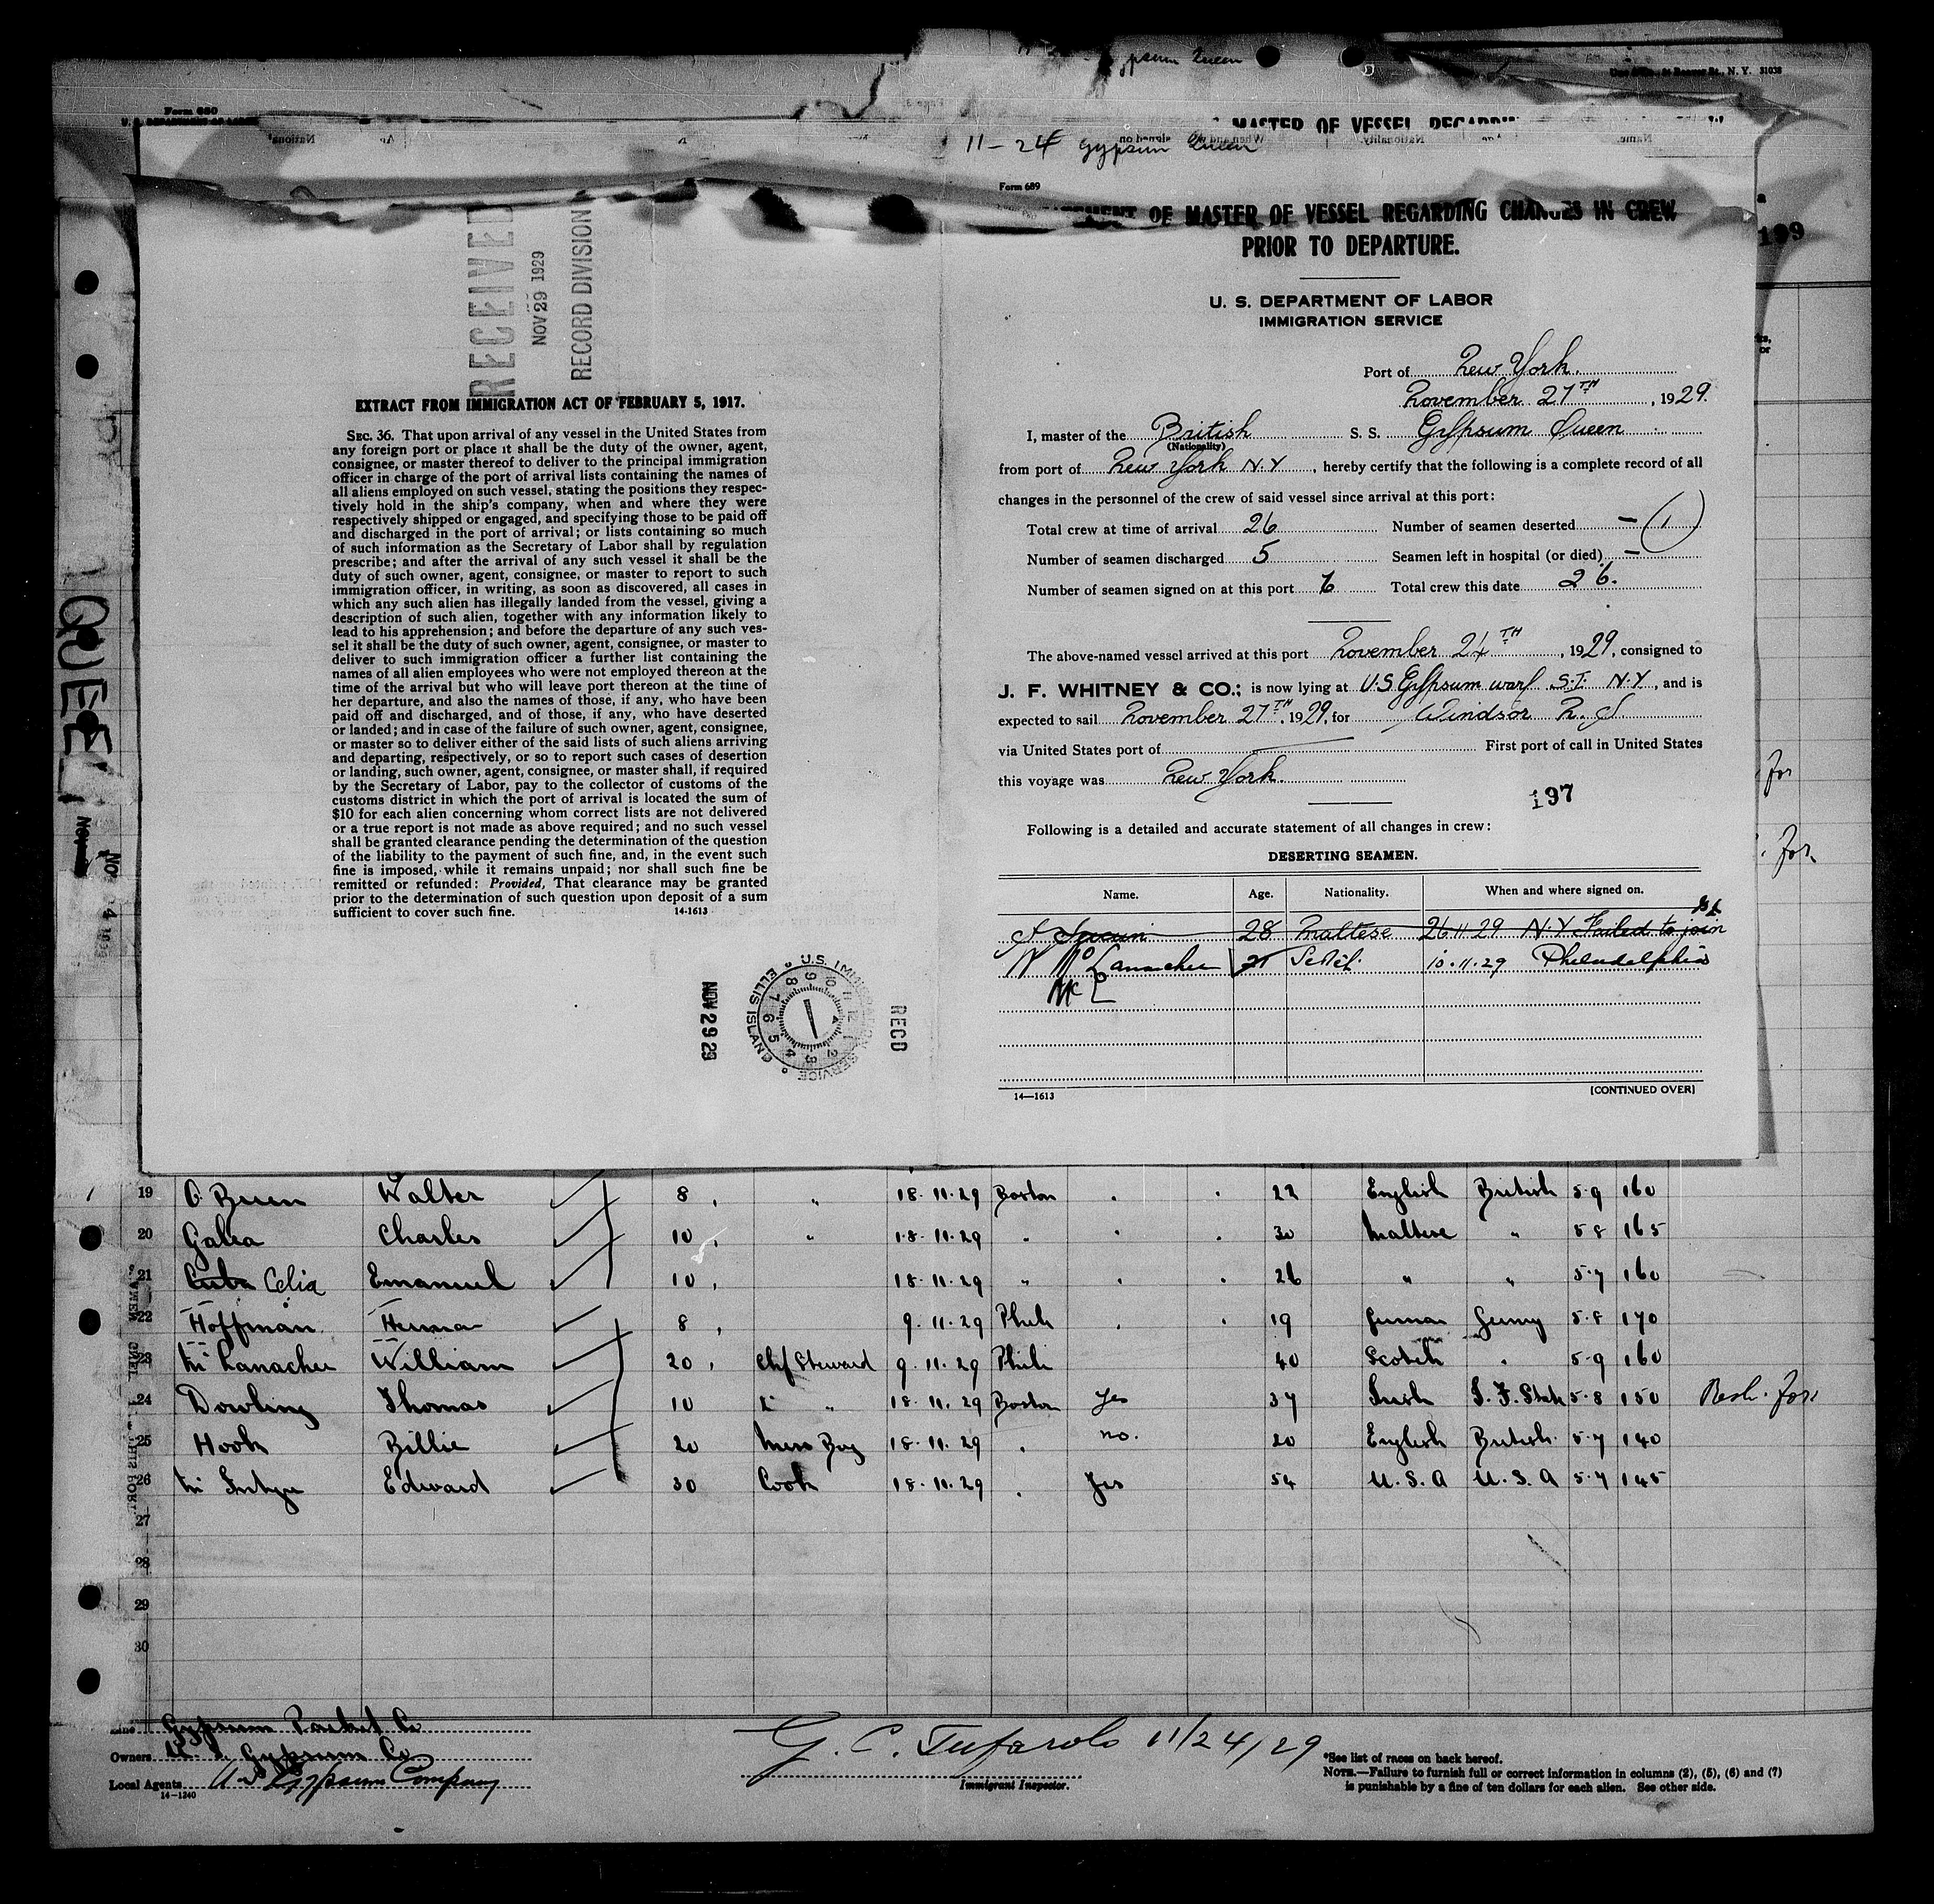 Gypsum Queen
Form 680
11-24 Gypsum Queen
Form 689
OF MASTER OF VESSEL REGARDING CHANGES IN CREW
PRIOR TO DEPARTURE.
U. S. DEPARTMENT OF LABOR
IMMIGRATION SERVICE
Port of New York.
November 27TH, 1929.
I, master of the British S. S. Gypsum Queen
(Nationality)
from port of New York N.Y, hereby certify that the following is a complete record of all
changes in the personnel of the crew of said vessel since arrival at this port:
Total crew at time of arrival 26 Number of seamen deserted — (1)
Number of seamen discharged 5 Seamen left in hospital (or died) —
Number of seamen signed on at this port 6 Total crew this date 26.
The above-named vessel arrived at this port November 24TH, 1929, consigned to
J. F. WHITNEY & CO.; is now lying at U.S Gypsum warf S.I. N.Y, and is
expected to sail November 27TH, 1929, for Windsor N. S
via United States port of First port of call in United States
this voyage was New York.
197
Following is a detailed and accurate statement of all changes in crew:
DESERTING SEAMEN.
Name. Age. Nationality. When and where signed on.
28 Maltese 26 11 29 N.Y Failed to join
10.11.29 Philadelphia
14—1613 [CONTINUED OVER]
RECEIVED
NOV 29 1929
RECORD DIVISION
EXTRACT FROM IMMIGRATION ACT OF FEBRUARY 5, 1917.
SEC. 36. That upon arrival of any vessel in the United States from
any foreign port or place it shall be the duty of the owner, agent,
consignee, or master thereof to deliver to the principal immigration
officer in charge of the port of arrival lists containing the names of
all aliens employed on such vessel, stating the positions they respec-
tively hold in the ship's company, when and where they were
respectively shipped or engaged, and specifying those to be paid off
and discharged in the port of arrival; or lists containing so much
of such information as the Secretary of Labor shall by regulation
prescribe; and after the arrival of any such vessel it shall be the
duty of such owner, agent, consignee, or master to report to such
immigration officer, in writing, as soon as discovered, all cases in
which any such alien has illegally landed from the vessel, giving a
description of such alien, together with any information likely to
lead to his apprehension; and before the departure of any such ves-
sel it shall be the duty of such owner, agent, consignee, or master to
deliver to such immigration officer a further list containing the
names of all alien employees who were not employed thereon at the
time of the arrival but who will leave port thereon at the time of
her departure, and also the names of those, if any, who have been
paid off and discharged, and of those, if any, who have deserted
or landed; and in case of the failure of such owner, agent, consignee,
or master so to deliver either of the said lists of such aliens arriving
and departing, respectively, or so to report such cases of desertion
or landing, such owner, agent, consignee, or master shall, if required
by the Secretary of Labor, pay to the collector of customs of the
customs district in which the port of arrival is located the sum of
$10 for each alien concerning whom correct lists are not delivered
or a true report is not made as above required; and no such vessel
shall be granted clearance pending the determination of the question
of the liability to the payment of such fine, and, in the event such
fine is imposed, while it remains unpaid; nor shall such fine be
remitted or refunded: Provided, That clearance may be granted
prior to the determination of such question upon deposit of a sum
sufficient to cover such fine. 14-1613
NOV 29 29
U.S. IMMIGRATION SERVICE ELLIS ISLAND
RECD
199
19 O Brien Walter 8 " 18.11.29 Boston 22 English British 5-9 160
20 Galea Charles 10 " 18.11.29 " 30 Maltese " 5 8 165
21 Celia Emanuel 10 18.11.29 " 26 " " 5-7 160
22 Hoffman 8 9.11.29 Phila 19 German Germy 5-8 170
23 William 20 Chf Steward 9.11.29 Phila 40 Scotch 5-9 160
24 Dowling Thomas 10 " 18.11.29 Boston Yes 37 Irish I. F. State 5-8 150
25 Hook Billie 20 Mess Boy 18.11.29 no. 20 English British 5-7 140
26 Edward 30 Cook 18.11.29 Yes 54 U.S.A U.S.A 5-7 145
27
28
29
30
Gypsum Packet Co
Owners U. S. Gypsum Co
Local Agents U S Gypsum Company
14-1240
G. C. Tufarolo 11/24/29
Immigrant Inspector.
*See list of races on back hereof.
NOTE.—Failure to furnish full or correct information in columns (2), (5), (6) and (7)
is punishable by a fine of ten dollars for each alien. See other side.